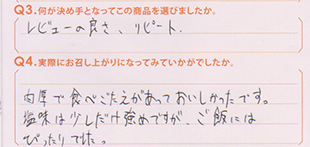 Q3.何が決め手となってこの商品を選びましたか。
レビューの良さ、リピート.
Q4.実際にお召し上がりになってみていかがでしたか。
肉厚で食べごたえがあっておいしかったです。
塩味は少しだけ強めですが、ご飯には
ぴったりでした。